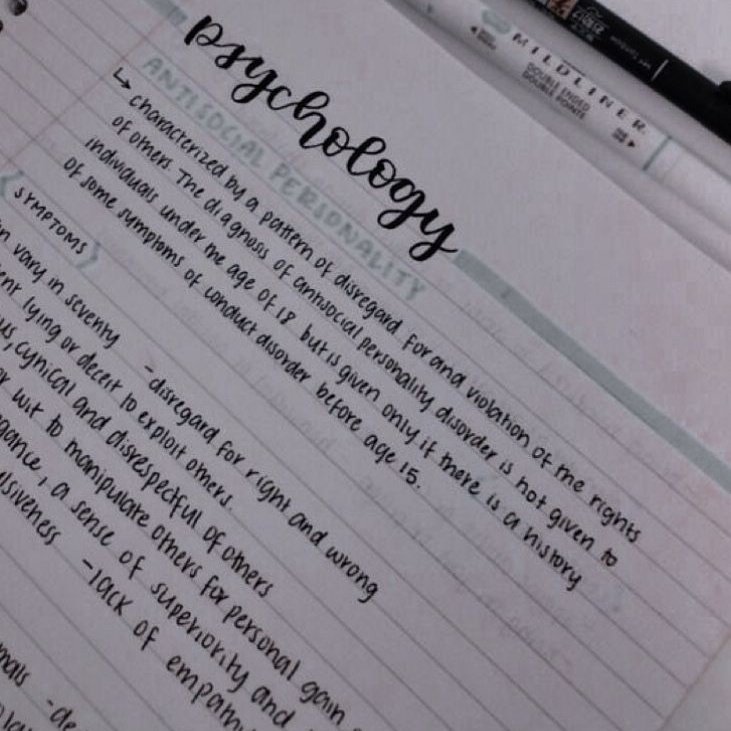 MILDLINER
DOUBLE ENDED
DOUBLE POINTE
psychology
ANTISOCIAL PERSONALITY
↳ characterized by a pattern of disregard for and violation of the rights
of others. The diagnosis of antisocial personality disorder is not given to
individuals under the age of 18 but is given only if there is a history
of some symptoms of conduct disorder before age 15.
SYMPTOMS
vary in severity - disregard for right and wrong
lying or deceit to exploit others.
cynical and disrespectful of others
wit to manipulate others for personal gain
a sense of superiority and
- lack of